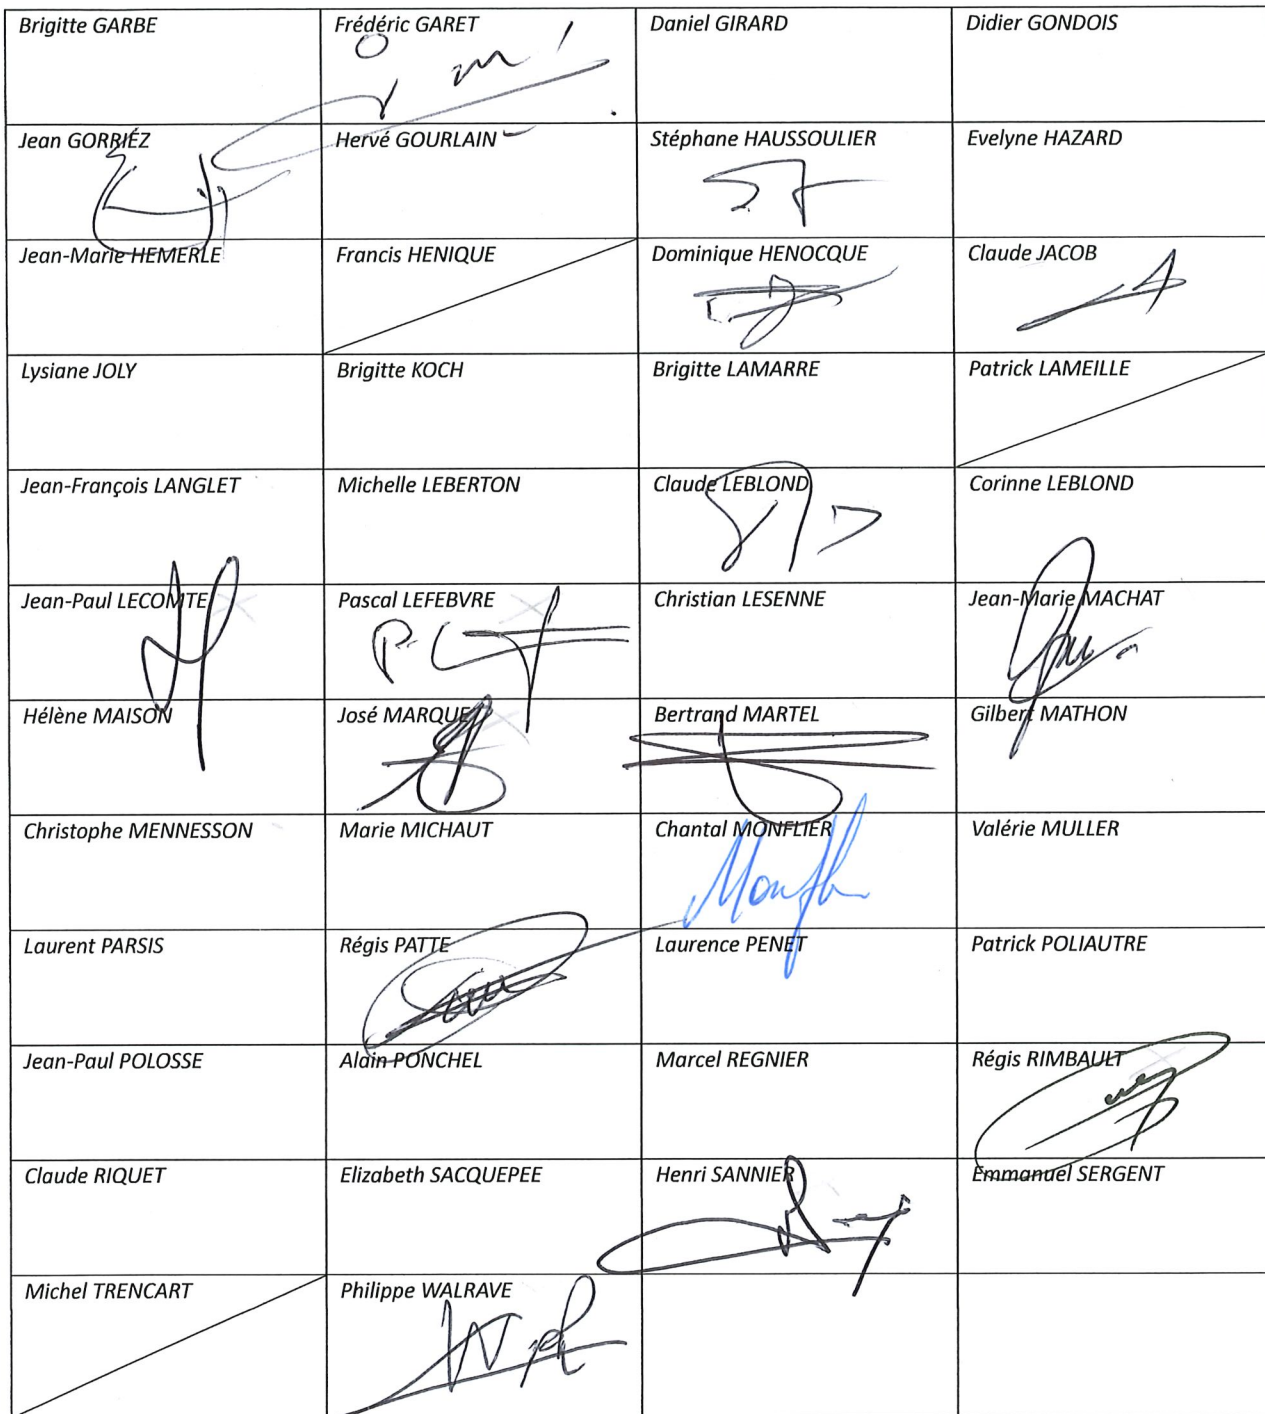 Brigitte GARBE
Frédéric GARET
Daniel GIRARD
Didier GONDOIS
Jean GORRIÉZ
Hervé GOURLAIN
Stéphane HAUSSOULIER
Evelyne HAZARD
Jean-Marie HEMERLE
Francis HENIQUE
Dominique HENOCQUE
Claude JACOB
Lysiane JOLY
Brigitte KOCH
Brigitte LAMARRE
Patrick LAMEILLE
Jean-François LANGLET
Michelle LEBERTON
Claude LEBLOND
Corinne LEBLOND
Jean-Paul LECOMTE
Pascal LEFEBVRE
Christian LESENNE
Jean-Marie MACHAT
Hélène MAISON
José MARQUE
Bertrand MARTEL
Gilbert MATHON
Christophe MENNESSON
Marie MICHAUT
Chantal MONFLIER
Valérie MULLER
Laurent PARSIS
Régis PATTE
Laurence PENET
Patrick POLIAUTRE
Jean-Paul POLOSSE
Alain PONCHEL
Marcel REGNIER
Régis RIMBAULT
Claude RIQUET
Elizabeth SACQUEPEE
Henri SANNIER
Emmanuel SERGENT
Michel TRENCART
Philippe WALRAVE